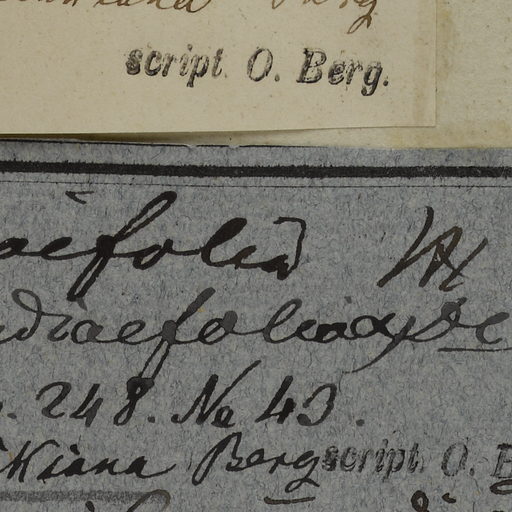 Berg
script. O. Berg.
aefolia W
ndiaefolia α De
. 248. No 43.
kiana Berg script. O. B